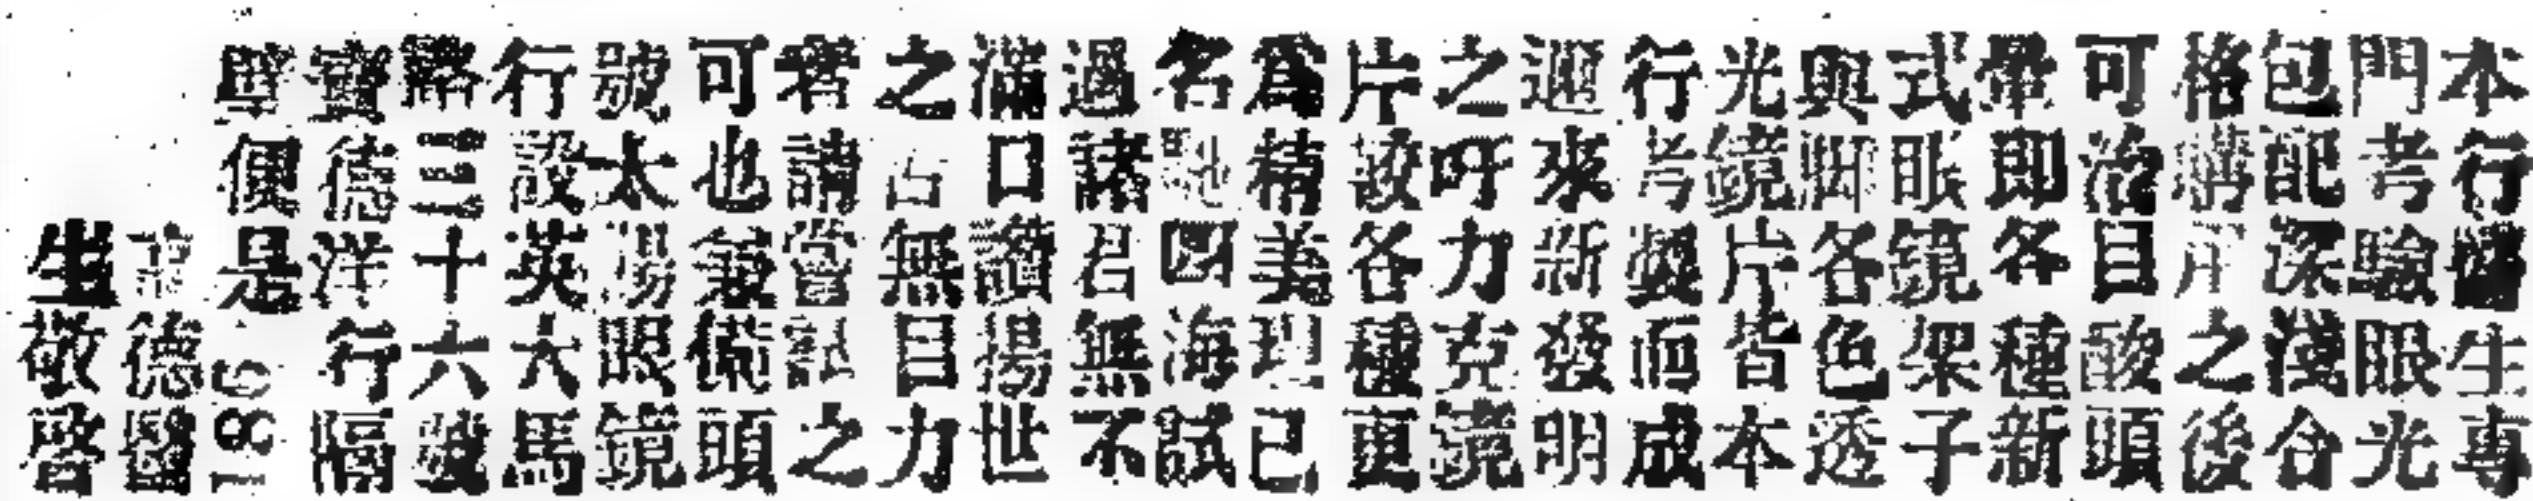 本行醫生專
門考驗眼光
包配深淺合
格購用之後
可治目酸頭
暈即各種新
式眼鏡架子
與脚各色透
光鏡片皆本
行考製而成
邇來新發明
之吁力克鏡
片設各種更
爲精美現已
名馳四海試
過諸君無不
滿口讚揚世
之無目力
者請嘗試之
可也兼備頭
號太陽眼鏡
行設英大馬
路三十六號
寶德洋行隔
壁便是 185
德醫
生敬啓